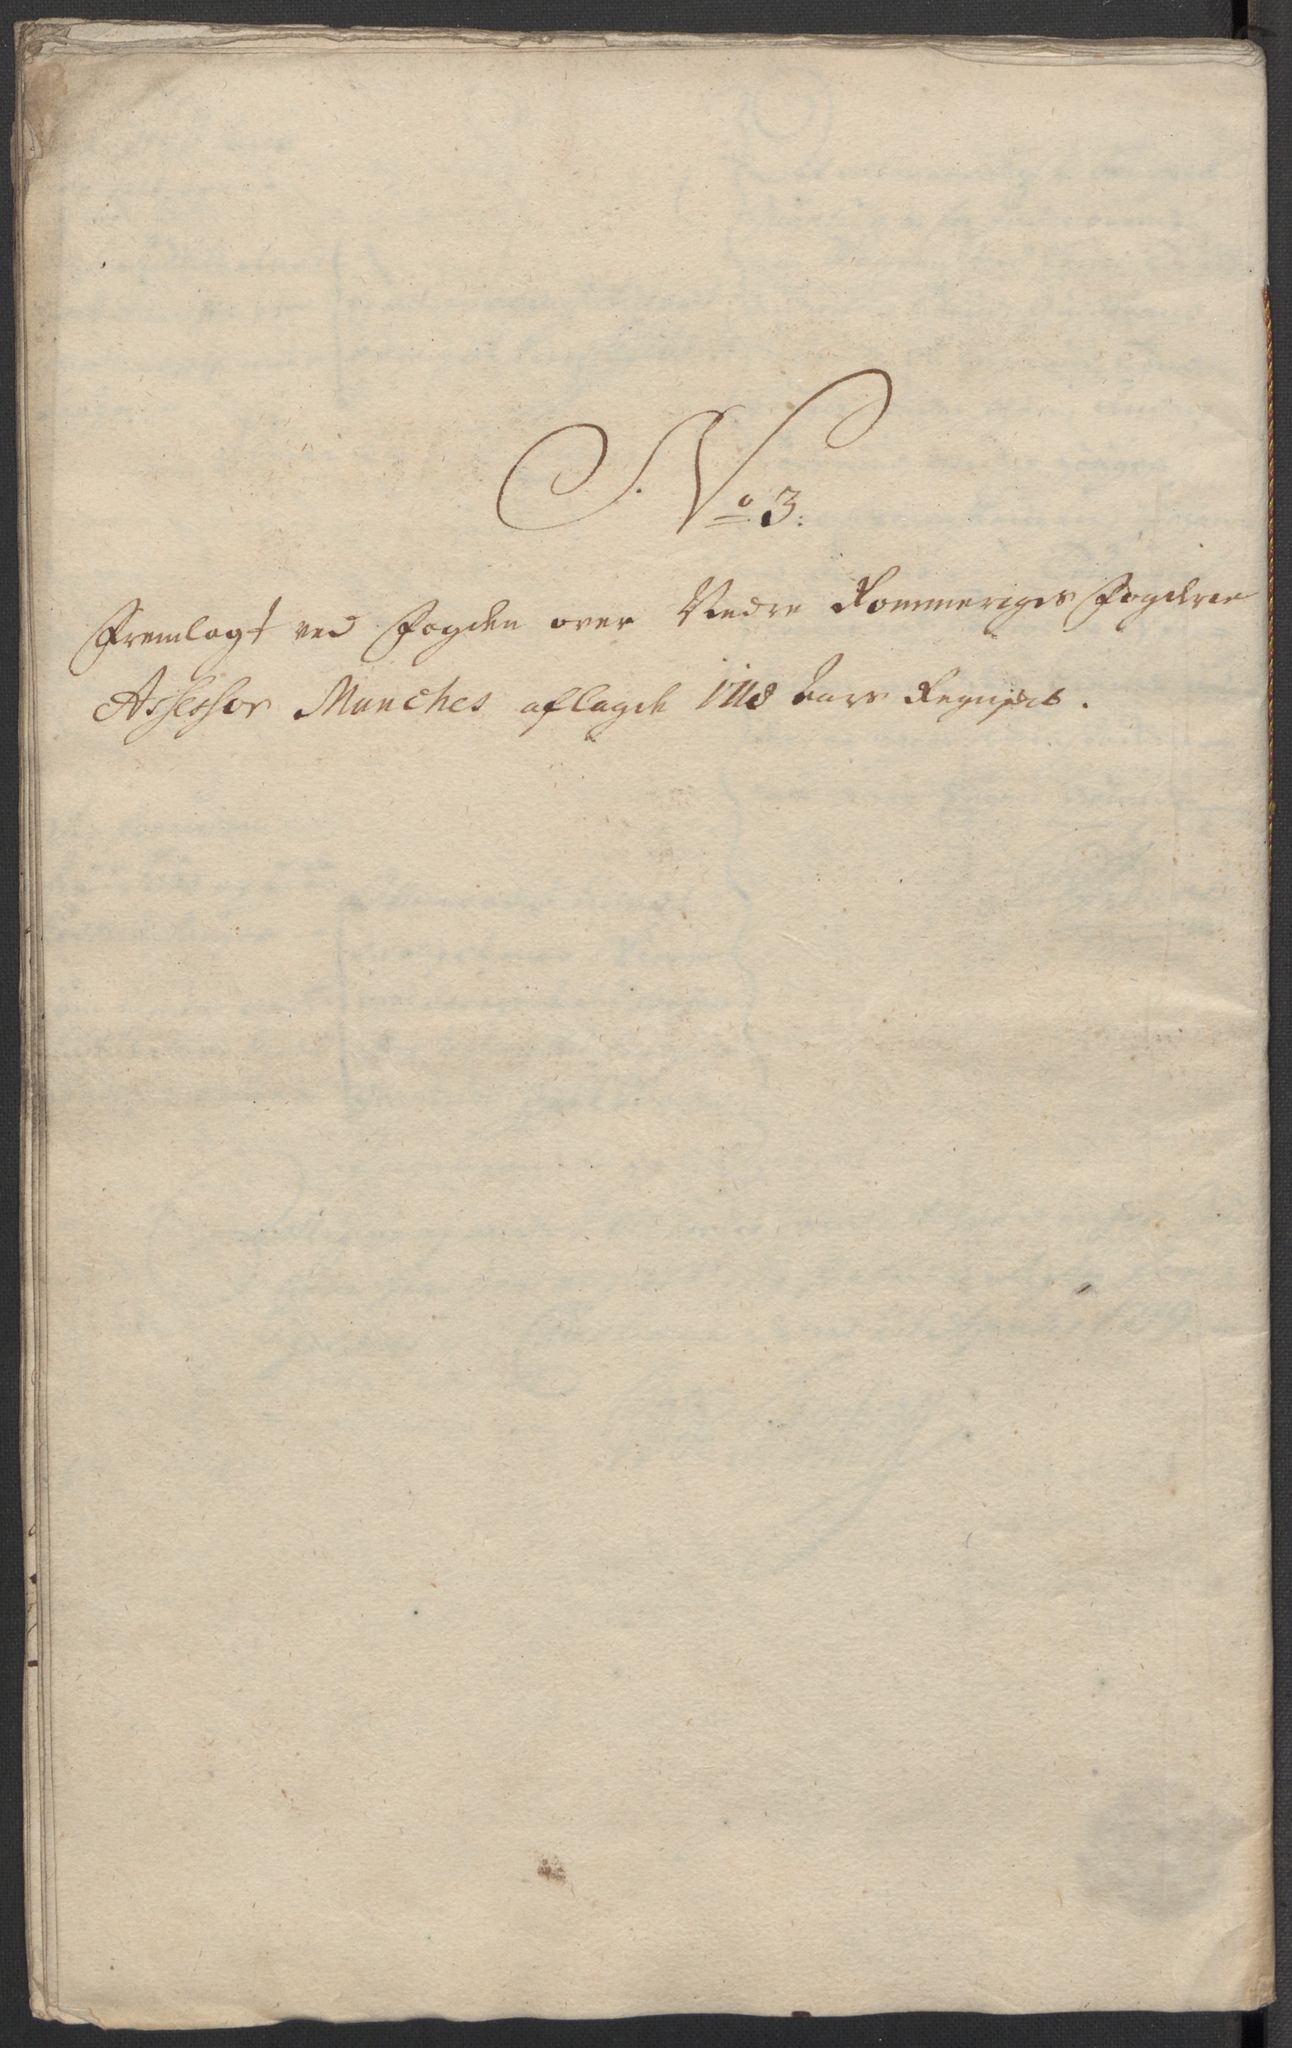 No 3.
Fremlagt ved Fogden over Nedre Rommeriges Fogderie
Assessor Munches aflagde 1718 Aars Regnskab.